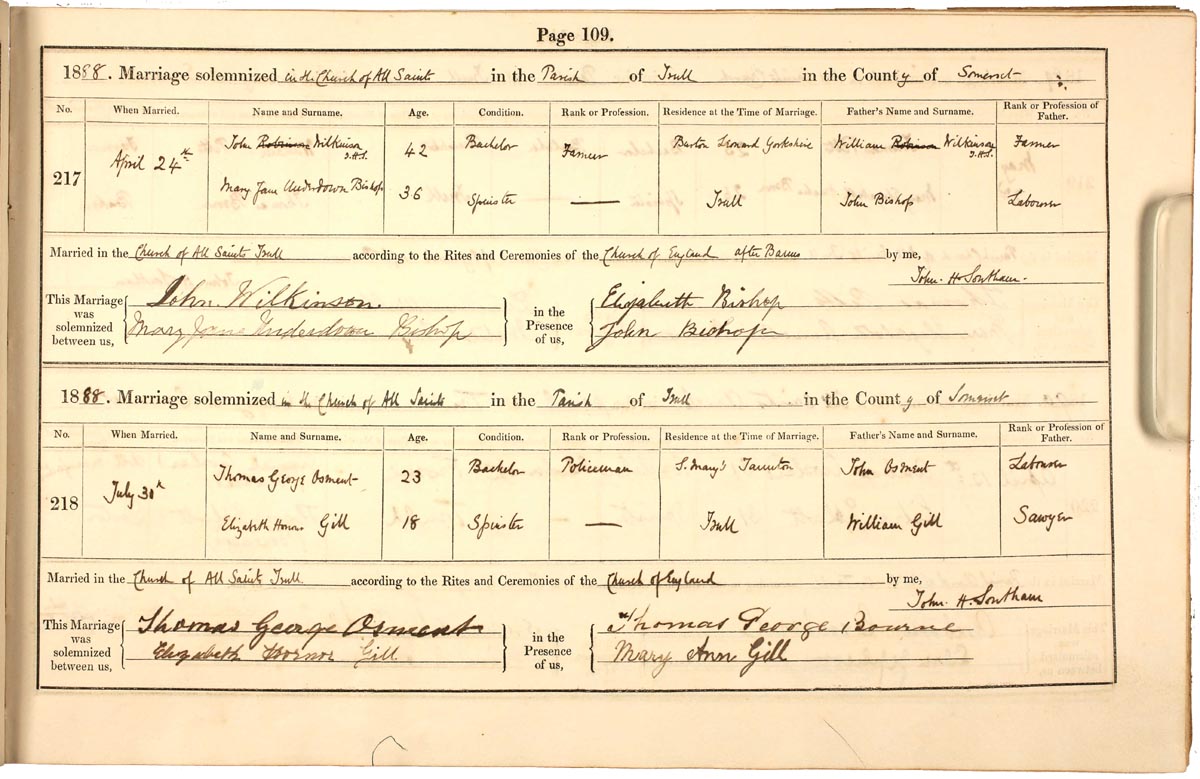 Page 109.
1888. Marriage solemnized in the Church of All Saints in the Parish of Trull in the County of Somerset
No. When Married. Name and Surname. Age. Condition. Rank or Profession. Residence at the Time of Marriage. Father's Name and Surname. Rank or Profession of Father.
217 April 24th John Robinson Wilkinson J.H.S. 42 Bachelor Farmer Burton Leonard Yorkshire William Robinson Wilkinson J.H.S. Farmer
Mary Jane Underdown Bishop 36 Spinster — Trull John Bishop Labourer
Married in the Church of All Saints Trull according to the Rites and Ceremonies of the Church of England after Banns by me,
John. H. Southam.
This Marriage was solemnized between us, John Wilkinson. in the Presence of us, Elizabeth Bishop
Mary Jane Underdown Bishop John Bishop
1888. Marriage solemnized in the Church of All Saints in the Parish of Trull in the County of Somerset
No. When Married. Name and Surname. Age. Condition. Rank or Profession. Residence at the Time of Marriage. Father's Name and Surname. Rank or Profession of Father.
218 July 30th Thomas George Osment 23 Bachelor Policeman S. Mary's Taunton John Osment Labourer
Elizabeth Honor Gill 18 Spinster — Trull William Gill Sawyer
Married in the Church of All Saints Trull according to the Rites and Ceremonies of the Church of England by me,
John. H. Southam
This Marriage was solemnized between us, Thomas George Osment in the Presence of us, Thomas George Bourne
Elizabeth Honor Gill Mary Ann Gill